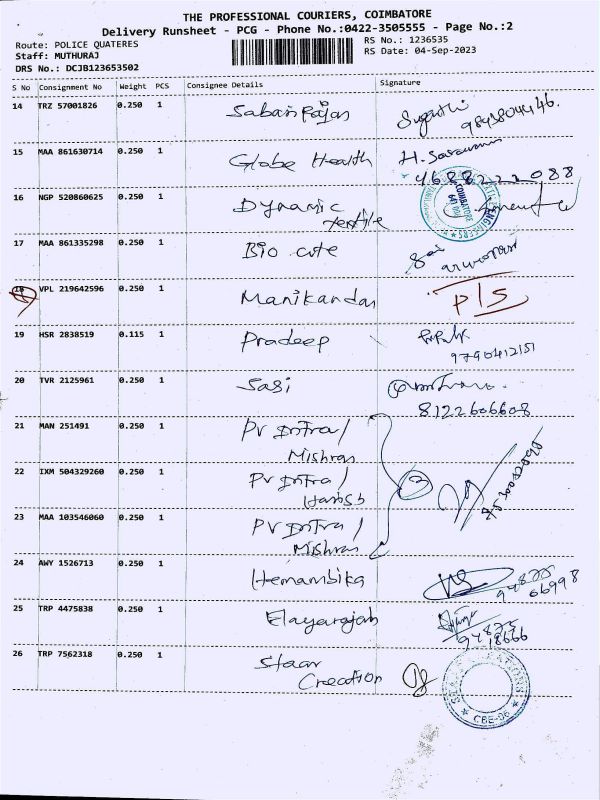 THE PROFESSIONAL COURIERS, COIMBATORE
Delivery Runsheet - PCG - Phone No.:0422-3505555 - Page No.:2
Route: POLICE QUATERES
RS No.: 1236535
Staff: MUTHURAJ
RS Date: 04-Sep-2023
DRS No.: DCJB123653502
S No Consignment No Weight PCS Consignee Details Signature
14 TRZ 57001826 0.250 1 Sabari Rajan
15 MAA 861630714 0.250 1 Globe Health H. Saravanan
16 NGP 520860625 0.250 1 Dynamic
textile
COIMBATORE
17 MAA 861335298 0.250 1 Bio cute Sai
18 VPL 219642596 0.250 1 Manikandan P/S
19 HSR 2838519 0.115 1 Pradeep
9790412151
20 TVR 2125961 0.250 1 Sasi
8122606608
21 MAN 251491 0.250 1 Pv Intra /
Mishran
22 IXM 504329260 0.250 1 Pv Intra /
Harish
3
23 MAA 103546060 0.250 1 Pv Intra /
Mishran
24 AWY 1526713 0.250 1 Hemambika
94875
66998
25 TRP 4475838 0.250 1 Elayarajah
94875
18666
26 TRP 7562318 0.250 1 Staar
Creation
CBE-06